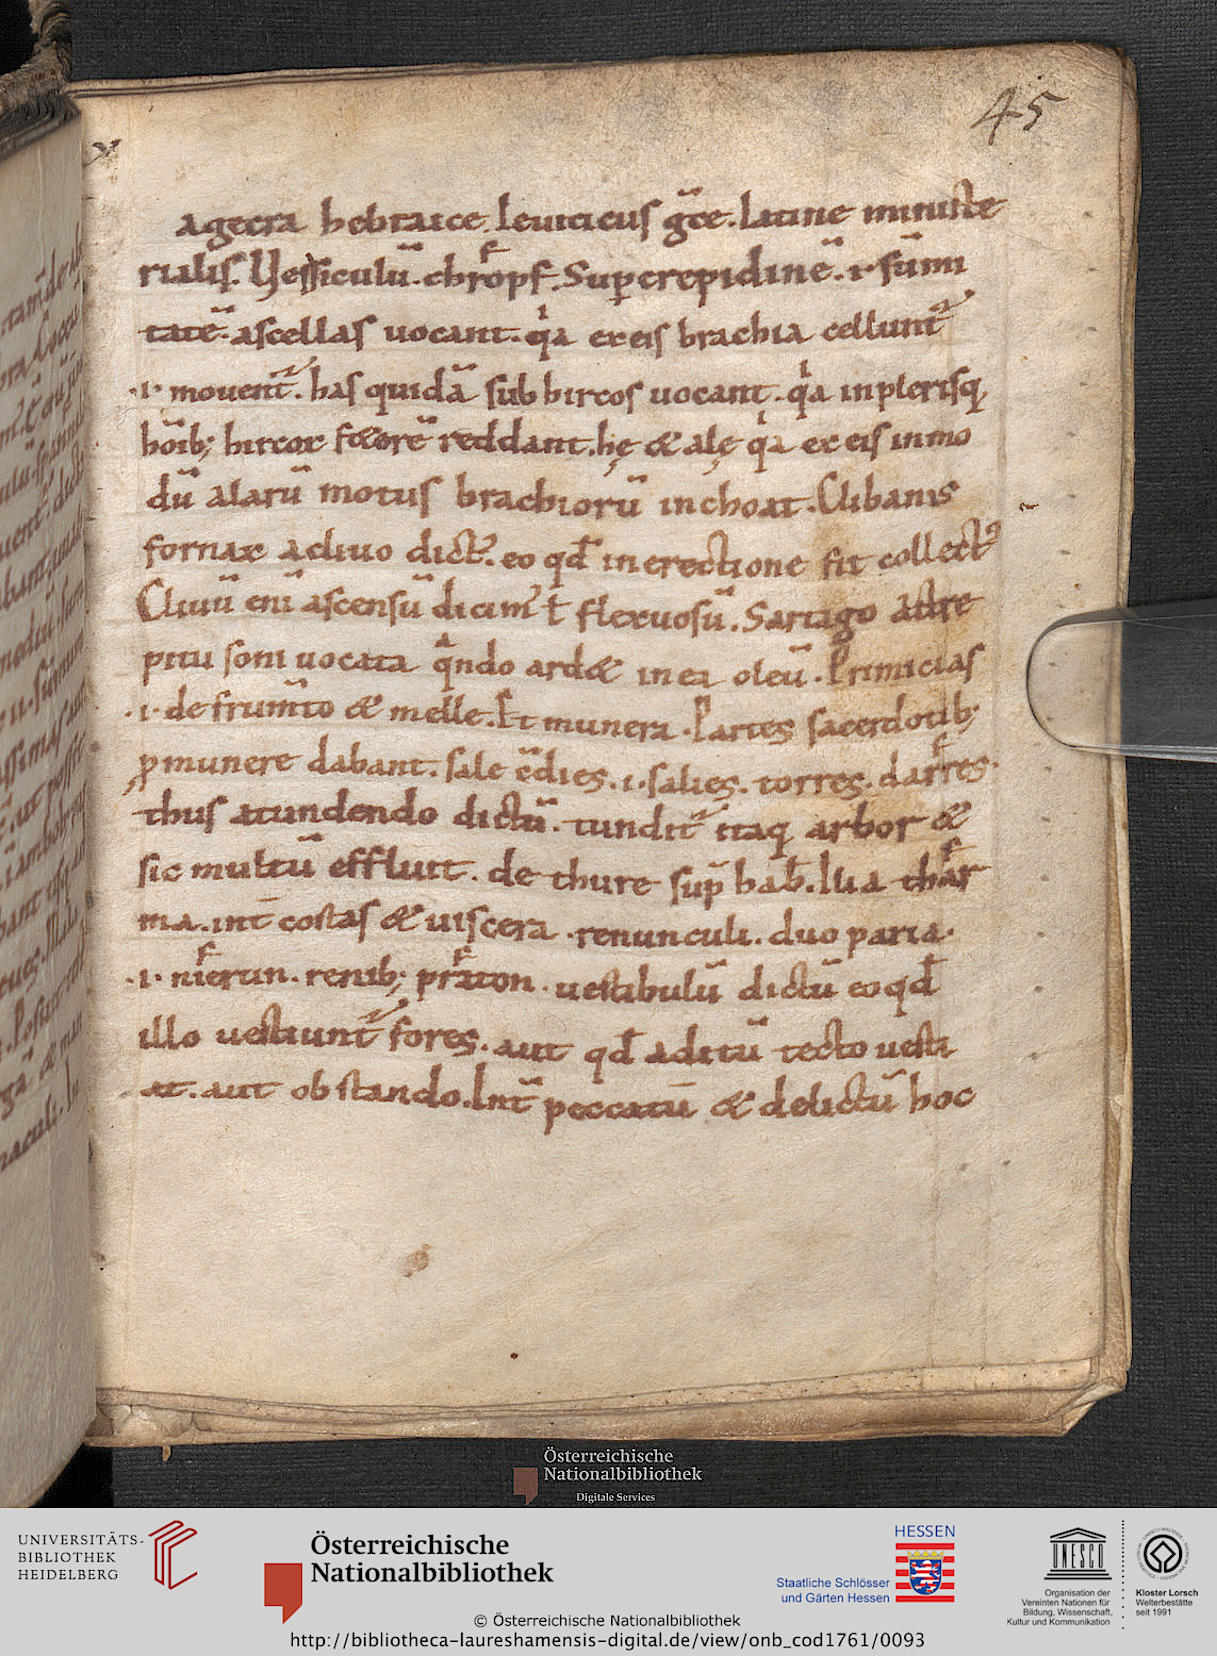 45
agecra hebraice leuiticus gc̄e. Latine ministe
rialis. Uessiculū. chropf. Sup crepidinē. ı. sūmi
tatē. ascellas uocant. qͥa ex eis brachia cellunt᷑
.ı. mouent᷑. has quidā sub hircos uocant. qͥa in plerisq;
hōib; hircor fetorē reddant. hę & alę qͥa ex eis in mo
dū alarū motus brachiorū inchoat. Clibanus
fornax a cliuo dict᷒. eo qđ in erectione sit collect᷒
Cliuū enī ascensū dicim᷒ ł flexuosū. Sartago a stre
pitu soni uocata qͣndo ard& in ea oleū. Primicias
.ı. de frum̄to & melle. Et munera. Partes sacerdotib;
ꝓ munere dabant. sale c̄dies. ı. salies. torres. darres.
thus a tundendo dictū. tundit᷑ itaq; arbor &
sic multū effluit. de thure sup̄ bab̄. Ilia thar
ma. int̄ costas & uiscera. renunculi. duo paria.
.ı. nierun. renib; praton. uestibulū dictū eo qđ
illo uestiunt᷑ fores. aut qđ aditū tecto uesti
at. aut obstando. Int̄ peccatū & delictū hoc
Österreichische
Nationalbibliothek
Digitale Services
UNIVERSITÄTS-
BIBLIOTHEK
HEIDELBERG
Österreichische
Nationalbibliothek
HESSEN
Staatliche Schlösser
und Gärten Hessen
UNESCO
Organisation der
Vereinten Nationen für
Bildung, Wissenschaft,
Kultur und Kommunikation
Kloster Lorsch
Welterbestätte
seit 1991
© Österreichische Nationalbibliothek
http://bibliotheca-laureshamensis-digital.de/view/onb_cod1761/0093